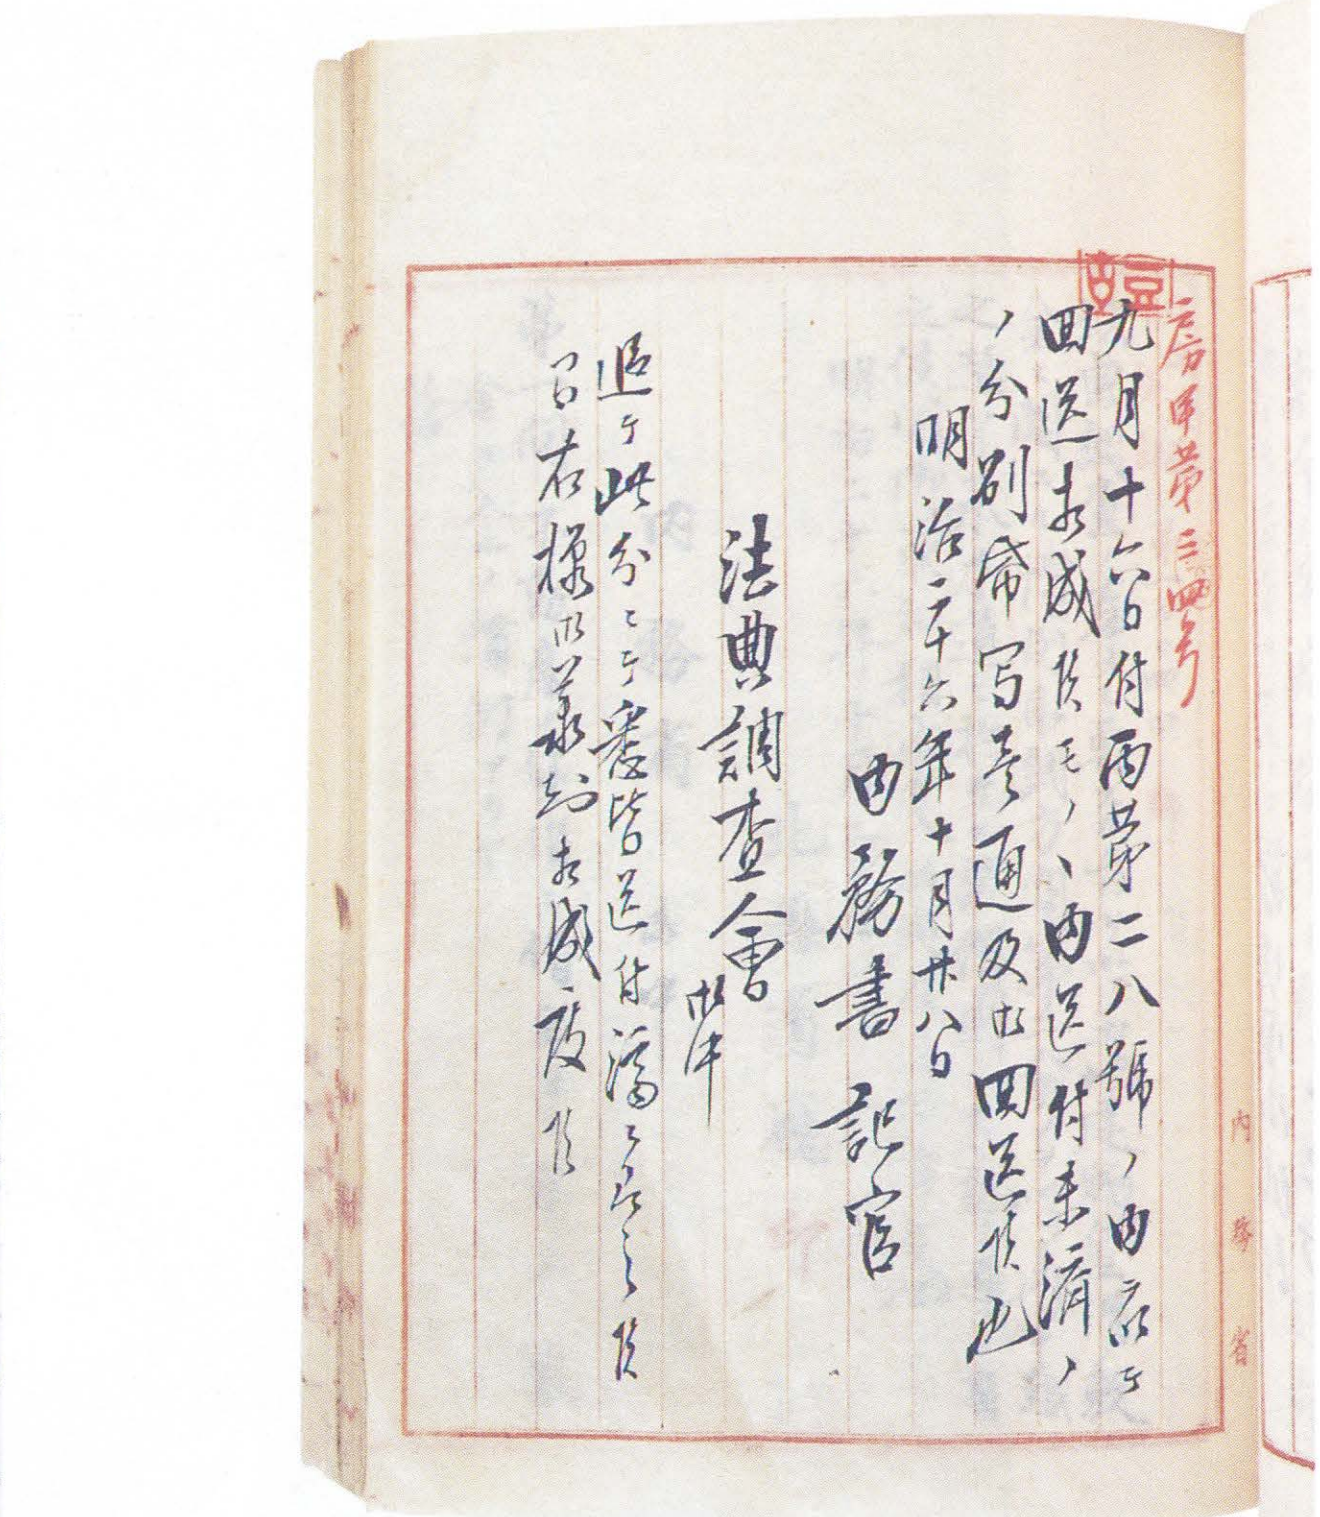 房甲第三四号
九月十六日付丙第二八號ノ内府ヨ
回送相成候モノヽ内送付未済ノ
ノ分別帋写壱通及御回送候也
明治二十六年十月廿八日
内務書記官
法典調査會
御中
追テ此分ニテ悉皆送付済ニ有之候
間右様御承知相成度候
内務省